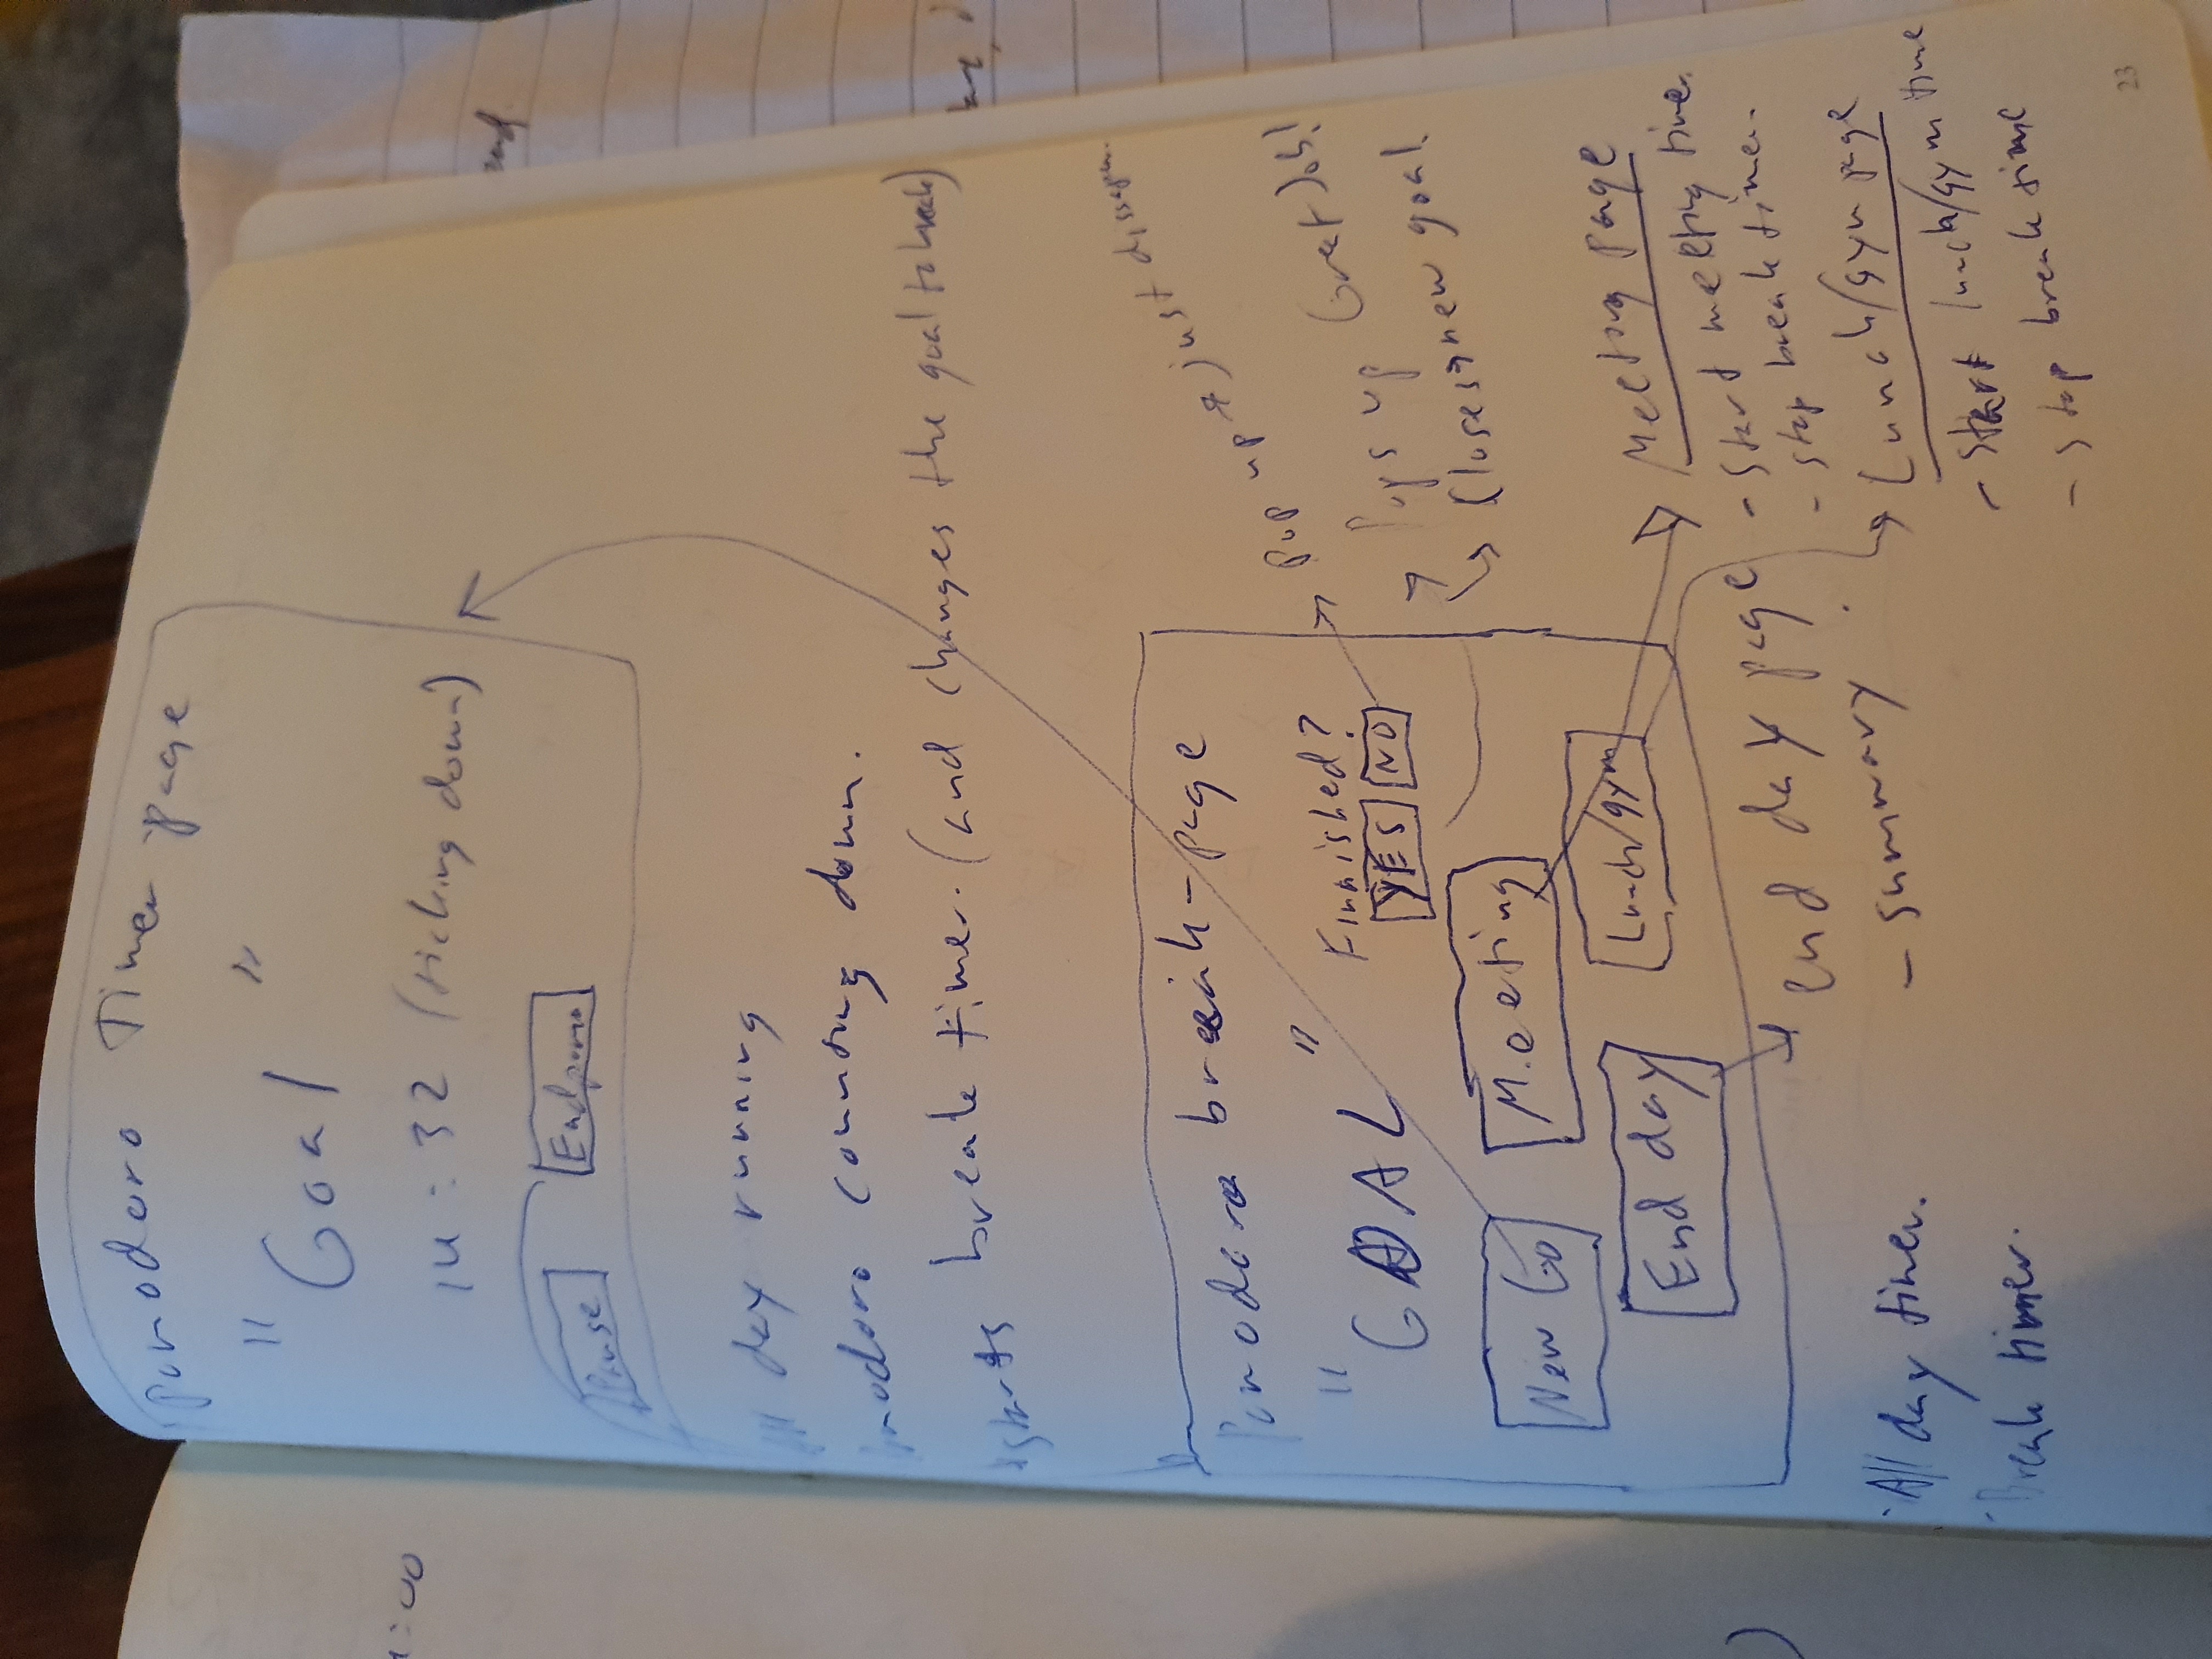 Pomodoro Timer page
" Goal "
14:32 (ticking down)
Pause
End pomo
All day running
Pomodoro counting down.
*starts break timer. (and changes the goal to break)
Pomodoro break-page
" GOAL "
Finnished?
YES NO
Pop up → just dissapea.
Pops up Great Job!
Closes → new goal.
New Go
Meeting
End day
Lunch/gym
end day page
- summary
Meeting page
- Start meeting timer.
- stop break timer.
Lunch/Gym page
- Start lunch/gym time
- stop break time
All day timer.
- Break timer.
:00
and
23